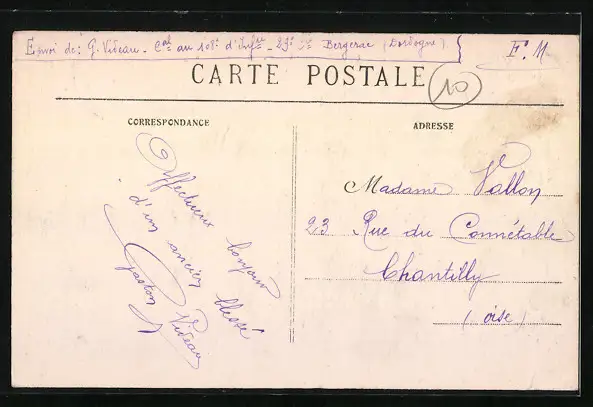 Envoi de: G. Videau - Cal au 108e d'Infie - 29e Cie Bergerac (Dordogne)
F. M.
CARTE POSTALE
10
CORRESPONDANCE
ADRESSE
Affectueux bonjour
d'un ancien blessé
Gaston Videau
Madame Vallon
23 Rue du Connétable
Chantilly
(oise)